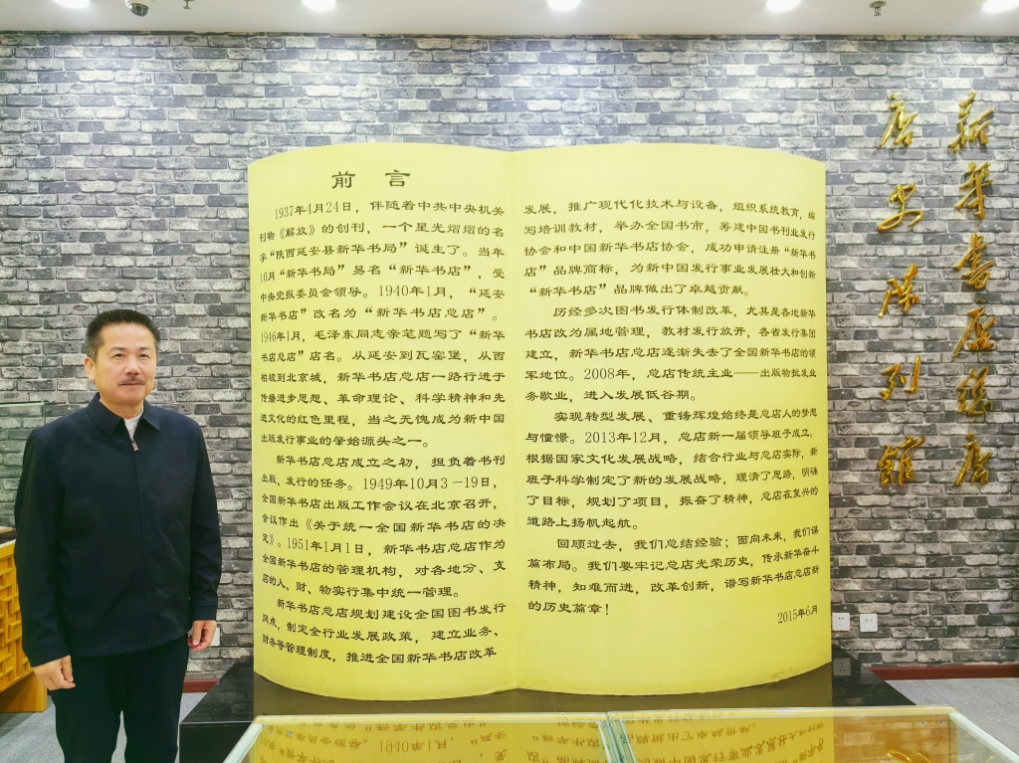 前言
1937年4月24日，伴随着中共中央机关
刊物《解放》的创刊，一个星光熠熠的名
字“陕西延安县新华书局”诞生了。当年
10月“新华书局”易名“新华书店”，受
中央党报委员会领导。1940年1月，“延安
新华书店”改名为“新华书店总店”。
1946年1月，毛泽东同志亲笔题写了“新华
书店总店”店名。从延安到瓦窑堡，从西
柏坡到北京城，新华书店总店一路行进于
传播进步思想、革命理论、科学精神和先
进文化的红色里程，当之无愧成为新中国
出版发行事业的肇始源头之一。
新华书店总店成立之初，担负着书刊
出版、发行的任务。1949年10月3－19日，
全国新华书店出版工作会议在北京召开，
会议作出《关于统一全国新华书店的决
定》。1951年1月1日，新华书店总店作为
全国新华书店的管理机构，对各地分、支
店的人、财、物实行集中统一管理。
新华书店总店规划建设全国图书发行
网点，制定全行业发展政策，建立业务、
财务等管理制度，推进全国新华书店改革
发展，推广现代化技术与设备，组织系统教育，编
写培训教材，举办全国书市，筹建中国书刊业发行
协会和中国新华书店协会，成功申请注册“新华书
店”品牌商标，为新中国发行事业发展壮大和创新
“新华书店”品牌做出了卓越贡献。
历经多次图书发行体制改革，尤其是各地新华
书店改为属地管理，教材发行放开，各省发行集团
建立，新华书店总店逐渐失去了全国新华书店的领
军地位。2008年，总店传统主业——出版物批发业
务歇业，进入发展低谷期。
实现转型发展、重铸辉煌始终是总店人的梦想
与憧憬。2013年12月，总店新一届领导班子成立。
根据国家文化发展战略，结合行业与总店实际，新
班子科学制定了新的发展战略，理清了思路，明确
了目标，规划了项目，振奋了精神，总店在复兴的
道路上扬帆起航。
回顾过去，我们总结经验；面向未来，我们谋
篇布局。我们要牢记总店光荣历史，传承新华奋斗
精神，知难而进，改革创新，谱写新华书店总店新
的历史篇章！
2015年6月
新华书店总店
店史陈列馆